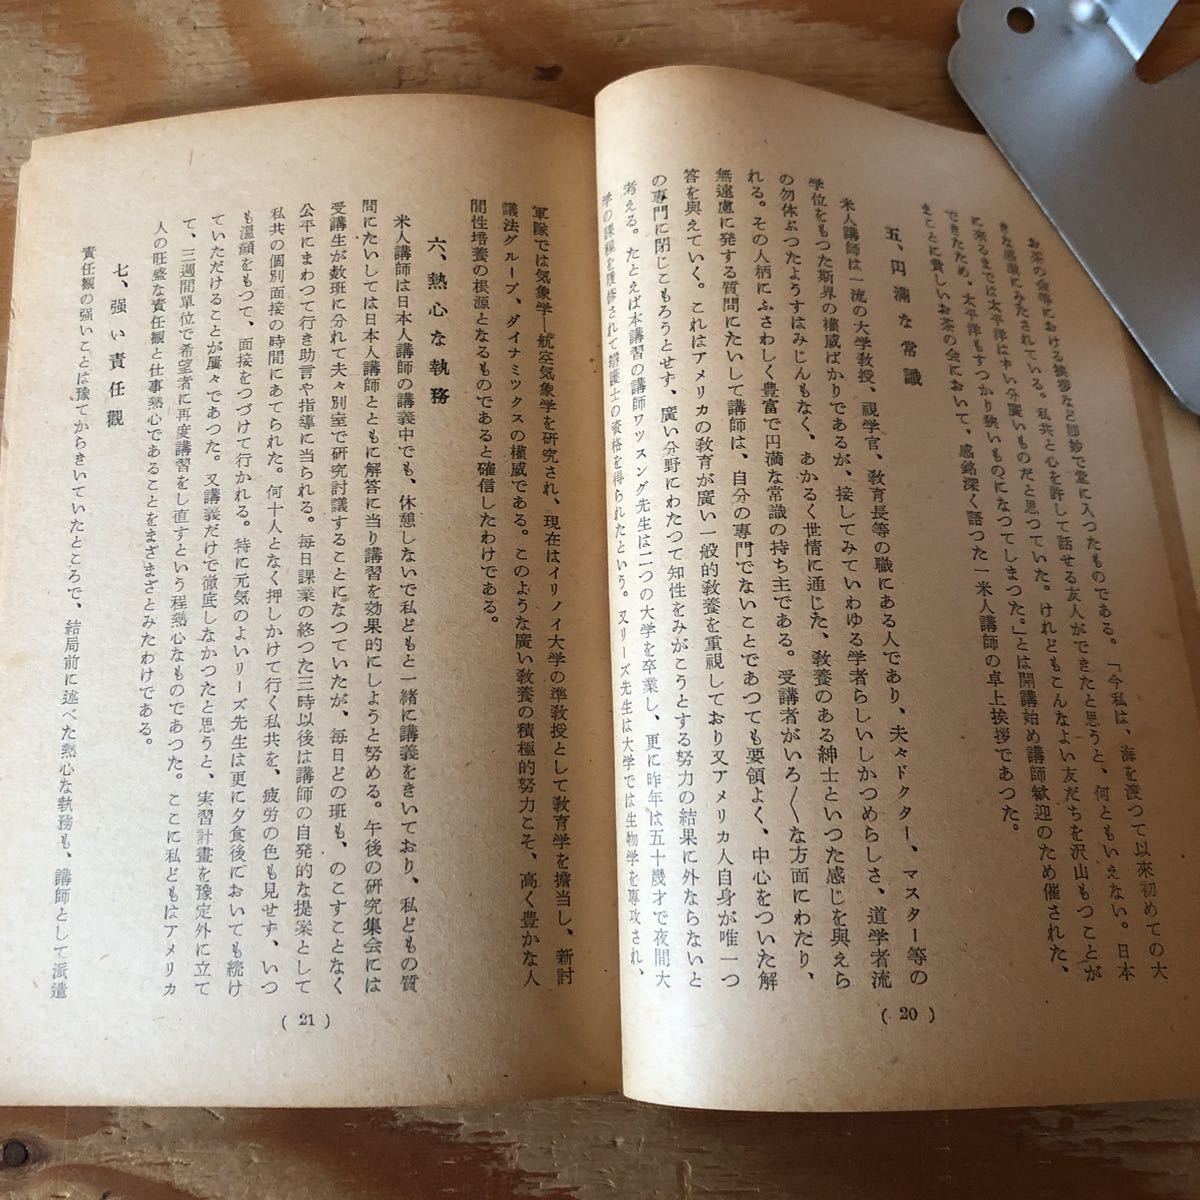 お茶の会等における挨拶など即妙で堂に入つたものである。「今私は、海を渡つて以來初めての大
きな感激にみたされている。私共と心を許して話せる友人ができたと思うと、何ともいえない。日本
に來るまでは太平洋はすい分廣いものだと思つていた。けれどもこんなよい友だちを沢山もつことが
できたため、太平洋もすつかり狭いものになつてしまつた。」とは開講始め講師歓迎のため催された、
まことに貧しいお茶の会において、感銘深く語つた一米人講師の卓上挨拶であつた。
五、円満な常識
米人講師は一流の大学教授、視学官、敎育長等の職にある人であり、夫々ドクター、マスター等の
学位をもつた斯界の權威ばかりであるが、接してみていわゆる学者らしいしかつめらしさ、道学者流
の勿体ぶつたようすはみじんもなく、あかるく世情に通じた、敎養のある紳士といつた感じを與えら
れる。その人柄にふさわしく豊富で円満な常識の持ち主である。受講者がいろ〱な方面にわたり、
無遠慮に発する質問にたいして講師は、自分の専門でないことであつても要領よく、中心をついた解
答を與えていく。これはアメリカの敎育が廣い一般的敎養を重視しており又アメリカ人自身が唯一つ
の専門に閉じこもろうとせず、廣い分野にわたつて知性をみがこうとする努力の結果に外ならないと
考える。たとえば本講習の講師ワツスング先生は二つの大学を卒業し、更に昨年は五十幾才で夜間大
学の課程を履修されて辯護士の資格を得られたという。又リーズ先生は大学では生物学を専攻され、
(20)
軍隊では気象学—航空気象学を研究され、現在はイリノイ大学の準敎授として敎育学を擔当し、新討
議法グループ、ダイナミツクスの權威である。このような廣い敎養の積極的努力こそ、高く豊かな人
間性培養の根源となるものであると確信したわけである。
六、熱心な執務
米人講師は日本人講師の講義中でも、休憩しないで私どもと一緒に講義をきいており、私どもの質
問にたいしては日本人講師とともに解答に当り講習を効果的にしようと努める。午後の研究集会には
受講生が数班に分れて夫々別室で研究討議することになつていたが、毎日どの班も、のこすことなく
公平にまわつて行き助言や指導に当られる。毎日課業の終つた三時以後は講師の自発的な提案として
私共の個別面接の時間にあてられた。何十人となく押しかけて行く私共を、疲労の色も見せず、いつ
も溫顔をもつて、面接をつづけて行かれる。特に元気のよいリーズ先生は更に夕食後においても続け
ていただけることが屢々であつた。又講義だけで徹底しなかつたと思うと、実習計畫を豫定外に立て
て、三週間單位で希望者に再度講習をし直すという程熱心なものであつた。ここに私どもはアメリカ
人の旺盛な責任観と仕事熱心であることをまざまざとみたわけである。
七、强い責任觀
責任観の强いことは豫てからきいていたところで、結局前に述べた熱心な執務も、講師として派遣
(21)